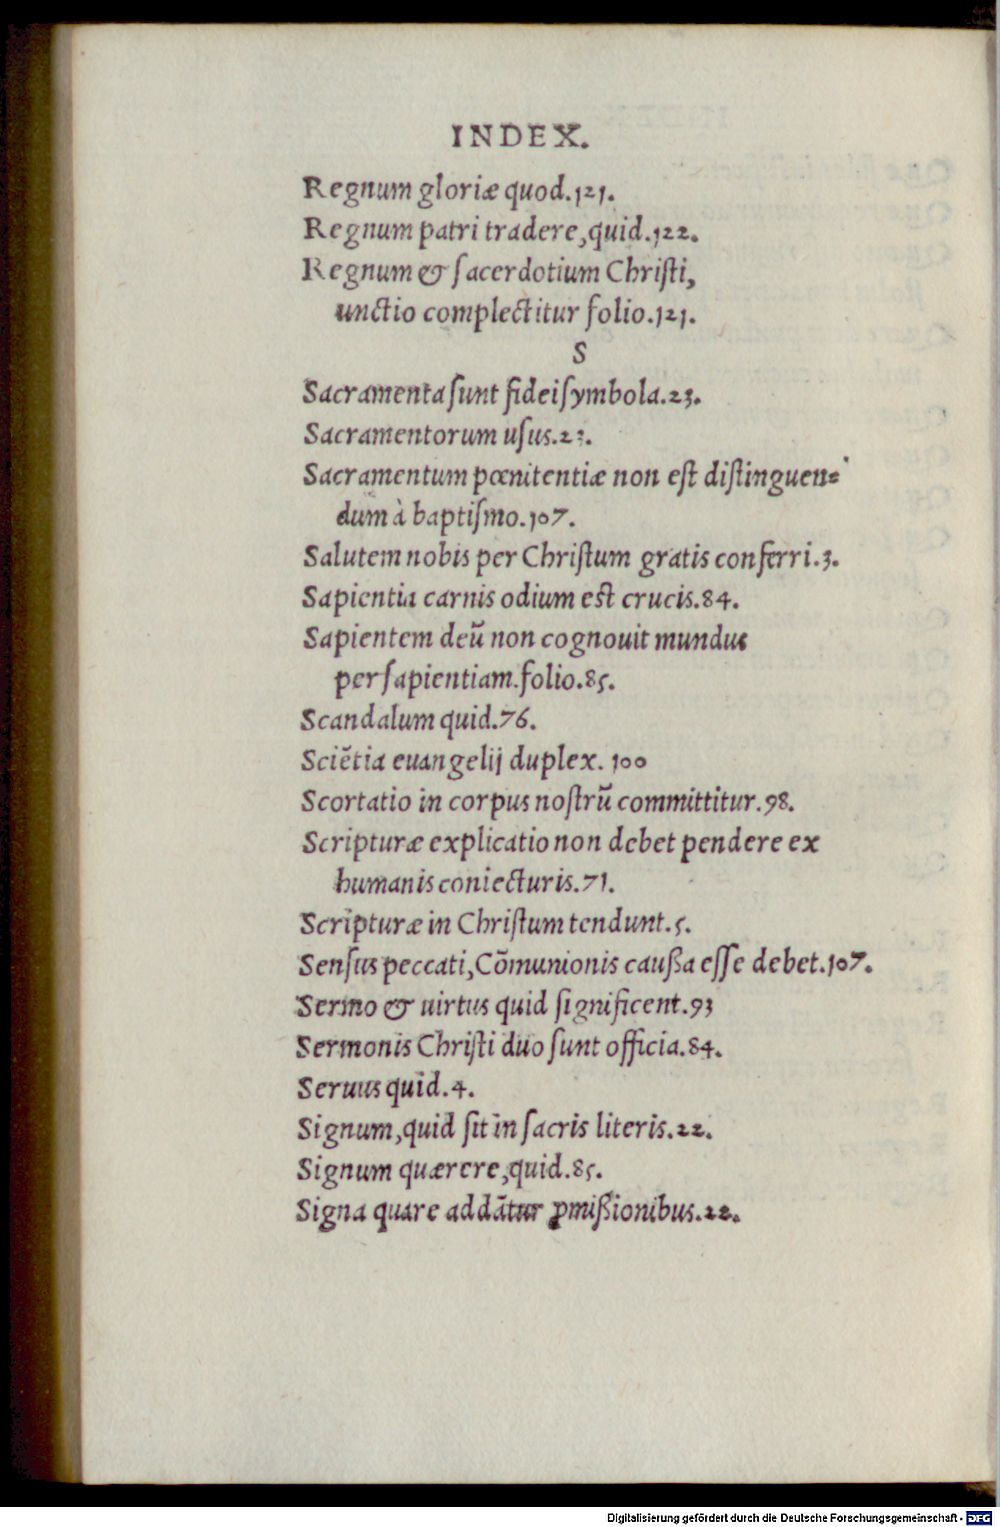 INDEX.
Regnum gloriæ quod.121.
Regnum patri tradere,quid.122.
Regnum & ſacerdotium Chriſti,
unctio complectitur folio.121.
S
Sacramenta ſunt fidei ſymbola.23.
Sacramentorum uſus.23.
Sacramentum pœnitentiæ non eſt diſtinguen=
dum à baptiſmo.107.
Salutem nobis per Chriſtum gratis conferri.3.
Sapientia carnis odium eſt crucis.84.
Sapientem deũ non cognouit mundus
per ſapientiam.folio.85.
Scandalum quid.76.
Sciẽtia euangelij duplex. 100
Scortatio in corpus noſtrũ committitur.98.
Scripturæ explicatio non debet pendere ex
humanis coniecturis.71.
Scripturæ in Chriſtum tendunt.5.
Senſus peccati,Cõmunionis cauſſa eſſe debet.107.
Sermo & uirtus quid ſignificent.93
Sermonis Chriſti duo ſunt officia.84.
Seruus quid.4.
Signum,quid ſit in ſacris literis.22.
Signum quærere,quid.85.
Signa quare addãtur ꝓmiſſionibus.22.
Digitalisierung gefördert durch die Deutsche Forschungsgemeinschaft - DFG